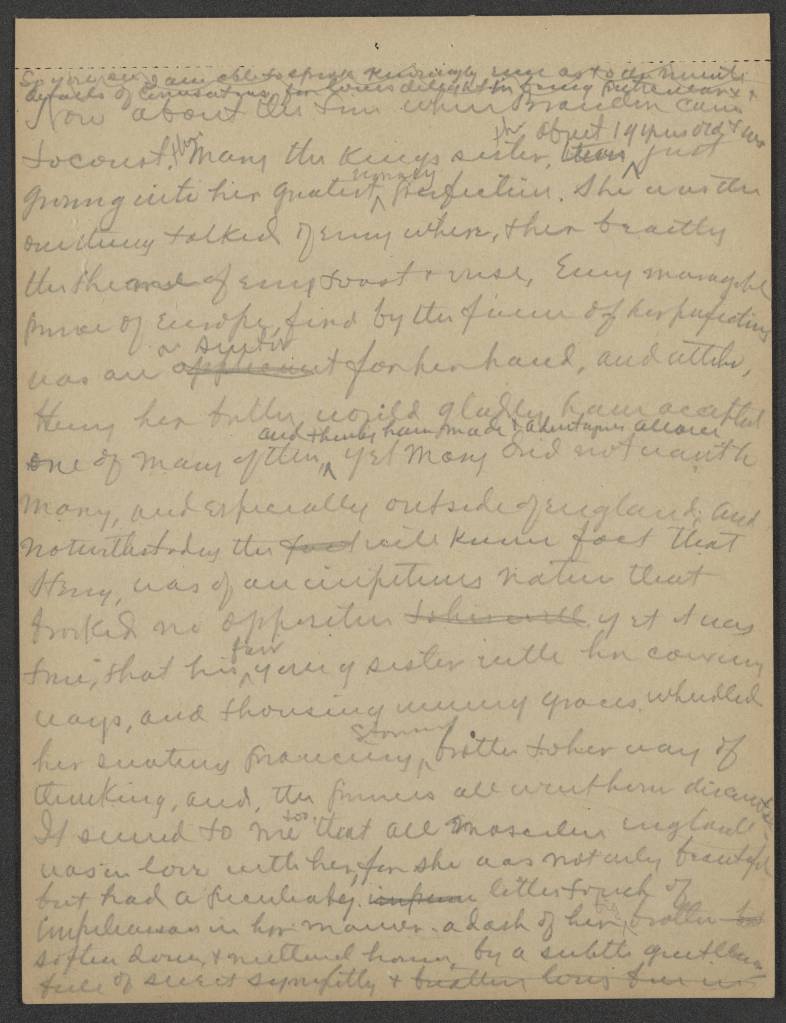 So you see I am able to speak knowingly even as to minute
details of conversations, for lovers delight in being
Now about the time when Brandon came
to court, Mary the Kings sister, just
about 19 years old & was
growing into her greatest womanly perfection. She was the
one thing talked of every where, & her beauty
the theme of every toast & verse, Every marriageable
prince of Europe, fired by the fame of her perfections
was an applicant or suitor for her hand, and
Henry her brother would gladly have accepted
and thereby have made advantageous alliance
one of many of them, yet Mary did not want to
marry, and especially outside of england; and
notwithstanding the fact well known fact that
Henry, was of an impetuous nature that
brooked no opposition to his will yet it was
true, that his fair young sister with her
ways, and thousand winning graces, wheedled
her stormy brother to her way of
thinking, and, the princes all went home
It seemed to me too that all masculine england
was in love with her, for she was not only beautiful
but had a little touch of
imperiousness in her manner - a dash of her brother
soften down & by a subtle
full of sweet sympathy &